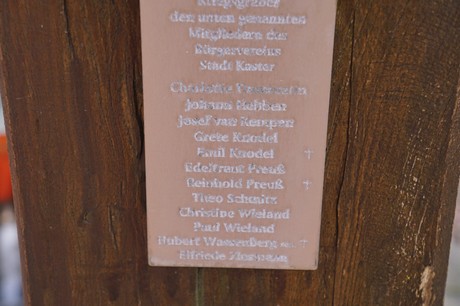 den unten genannten
Mitgliedern des
Bürgervereins
Stadt Kaster
Josef van Kempen
Grete Knodel
Emil Knodel †
Edeltraut Preuß
Reinhold Preuß †
Theo Schmitz
Christine Wieland
Paul Wieland
Hubert Wassenberg †
Elfriede